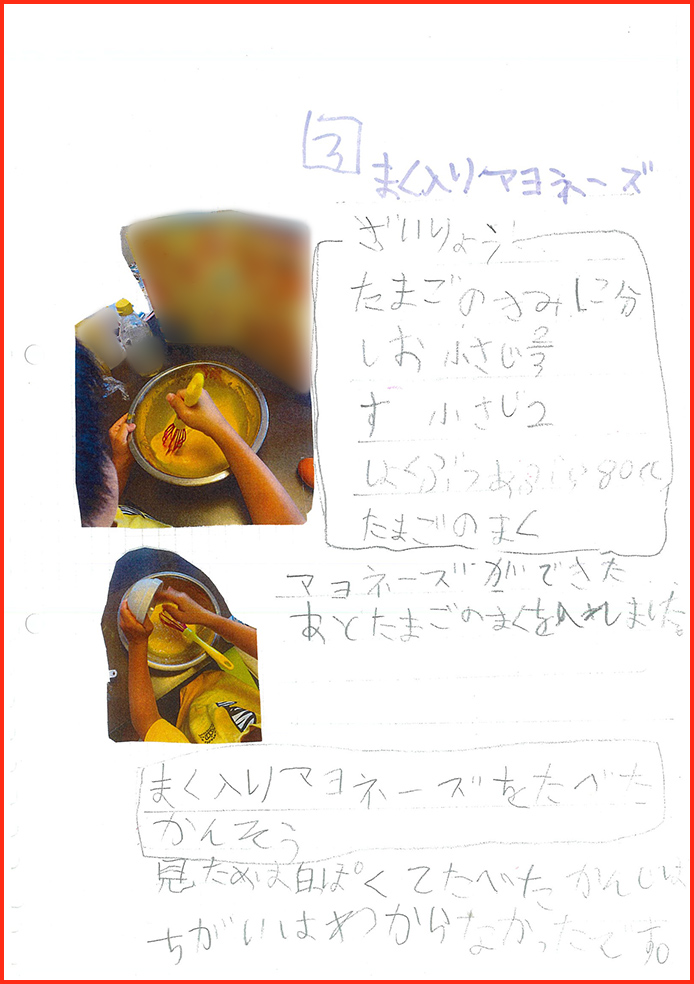 3
まく入りマヨネーズ
ざいりょう
たまごのきみ 2分
しお 小さじ2/3
す 小さじ2
しょくぶつあぶら 80cc
たまごのまく
マヨネーズができた
あとたまごのまくを入れました。
まく入りマヨネーズをたべた
かんそう
見ためは白ぽくてたべたかんじは
ちがいはわからなかったです。